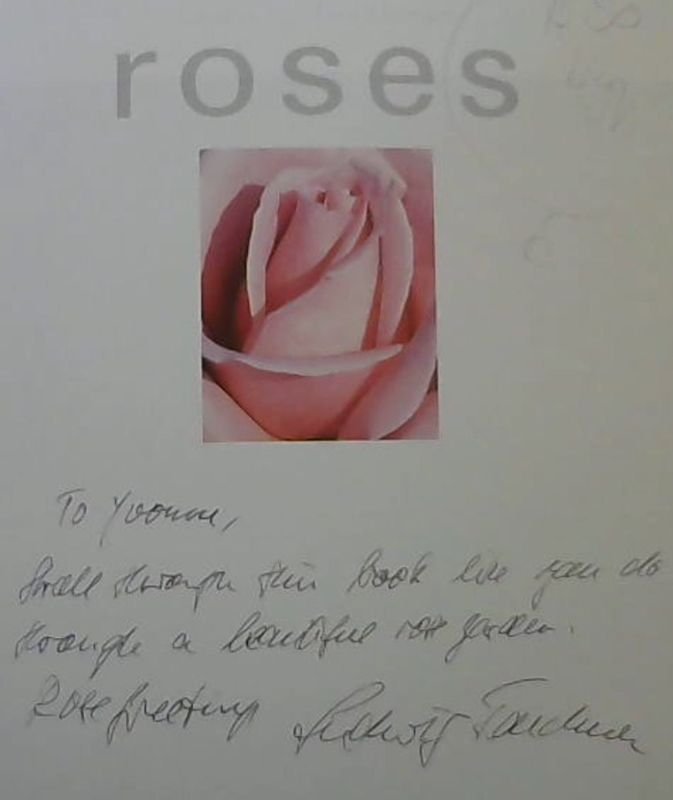 roses
To Yvonne,
Stroll through this book like you do
through a beautiful rose garden.
Rose greetings Ludwig Taschner